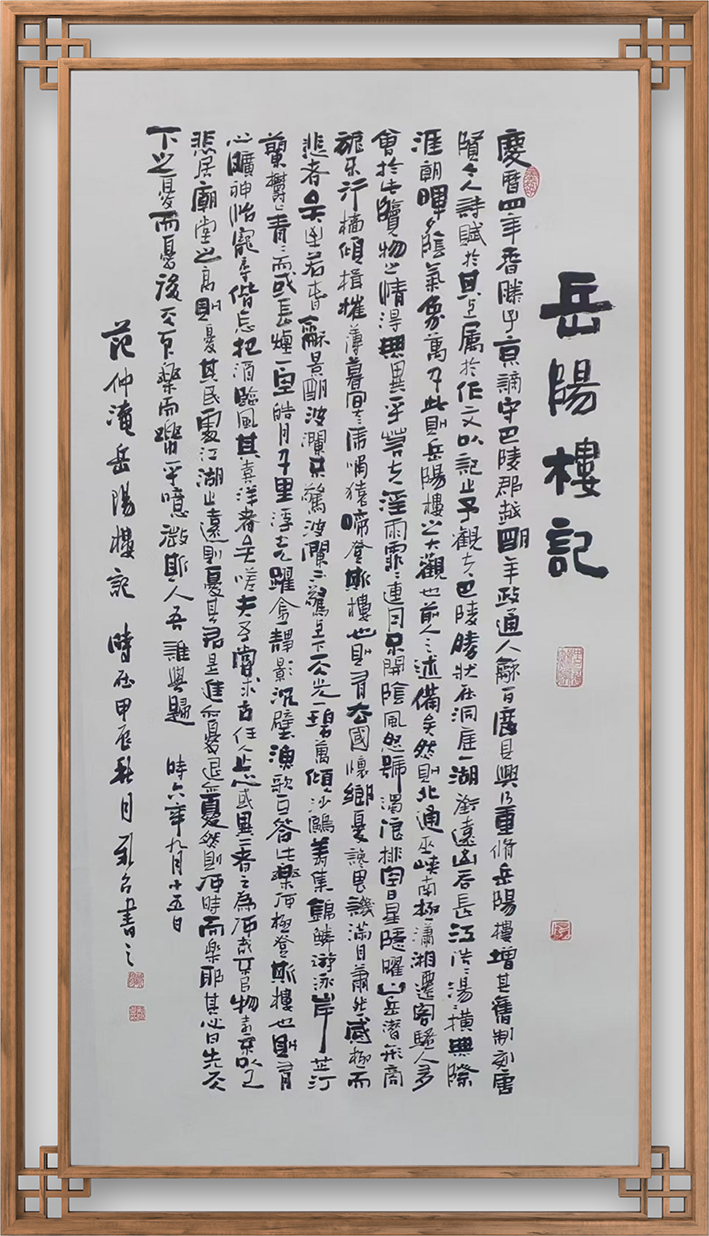 岳陽樓記
慶曆四年春滕子京謫守巴陵郡越明年政通人龢百廢具興乃重脩岳陽樓增其舊制刻唐
賢今人詩賦於其上屬於作文以記之予觀夫巴陵勝狀在洞庭一湖銜遠山吞長江浩〻湯〻橫無際
涯朝暉夕陰氣象萬千此則岳陽樓之大觀也前人之述備矣然則北通巫峽南極瀟湘遷客騷人多
會於此覽物之情得無異乎若夫淫雨霏〻連月不開陰風怒號濁浪排空日星隱曜山岳潛形商
旅不行檣傾楫摧薄暮冥〻虎嘯猿啼登斯樓也則有去國懷鄉憂讒畏譏滿目蕭然感極而
悲者矣至若春龢景明波瀾不驚波瀾不驚上下天光一碧萬頃沙鷗翔集錦鱗游泳岸芷汀
蘭鬱〻青〻而或長煙一空皓月千里浮光躍金靜影沉璧漁歌互答此樂何極登斯樓也則有
心曠神怡寵辱偕忘把酒臨風其喜洋洋者矣嗟夫予嘗求古仁人之心或異二者之為何哉不以物喜不以己
悲居廟堂之高則憂其民處江湖之遠則憂其君是進亦憂退亦憂然則何時而樂耶其必曰先天
下之憂而憂後天下樂而樂乎噫微斯人吾誰與歸 時六年九月十五日
范仲淹岳陽樓記 時在甲辰秋月 書之